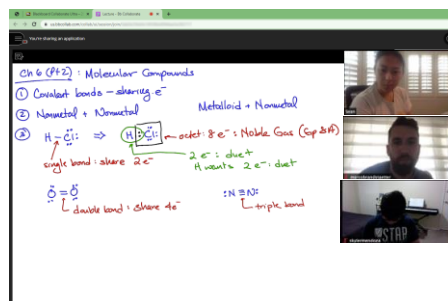 You're sharing an application
Ch 6 (Pt 2): Molecular Compounds
① Covalent bonds - sharing e⁻
② Nonmetal + Nonmetal
Metalloid + Nonmetal
③ H - Cl: ⇒ H : Cl: octet: 8 e⁻: Noble Gas
single bond: share 2 e⁻
2 e⁻: duet
H wants 2 e⁻: duet
O = O
:N ≡ N:
double bond: share 4e⁻
triple bond
Sean
STAR